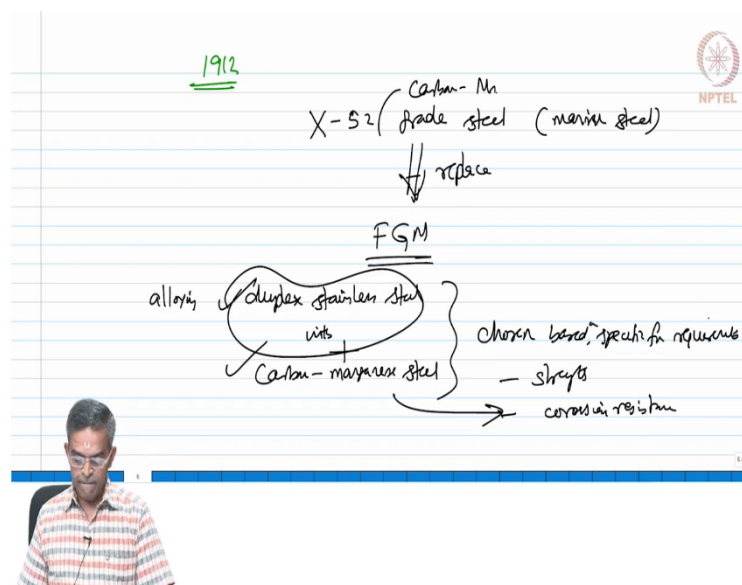 1912
NPTEL
Carbon-Mn
X-52 grade steel (marine steel)
replace
FGM
alloying duplex stainless steel
with
+
Carbon-manganese steel
Chosen based, specific fn requirements
- strength
- corrosion resistance